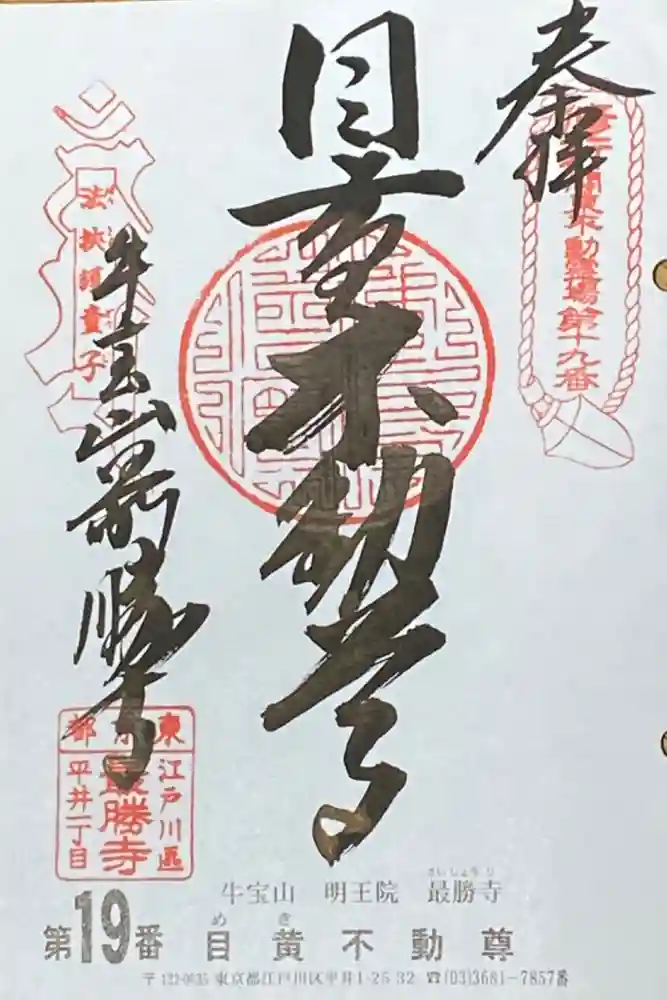 奉拝
関東不動霊場第十九番
目黄不動尊
法挟護童子
牛宝山最勝寺
東京都
江戸川區
最勝寺
平井一丁目
さいしょうじ
牛宝山 明王院 最勝寺
め き
第19番 目黄不動尊
東京都江戸川区平井1-25-32 ☎(03)3681-7857番